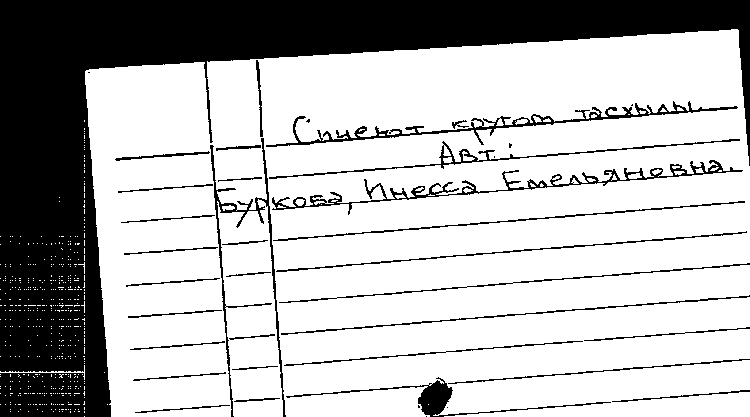 Синеют кругом тасхылы.
Авт.:
Буркова, Инесса Емельяновна.